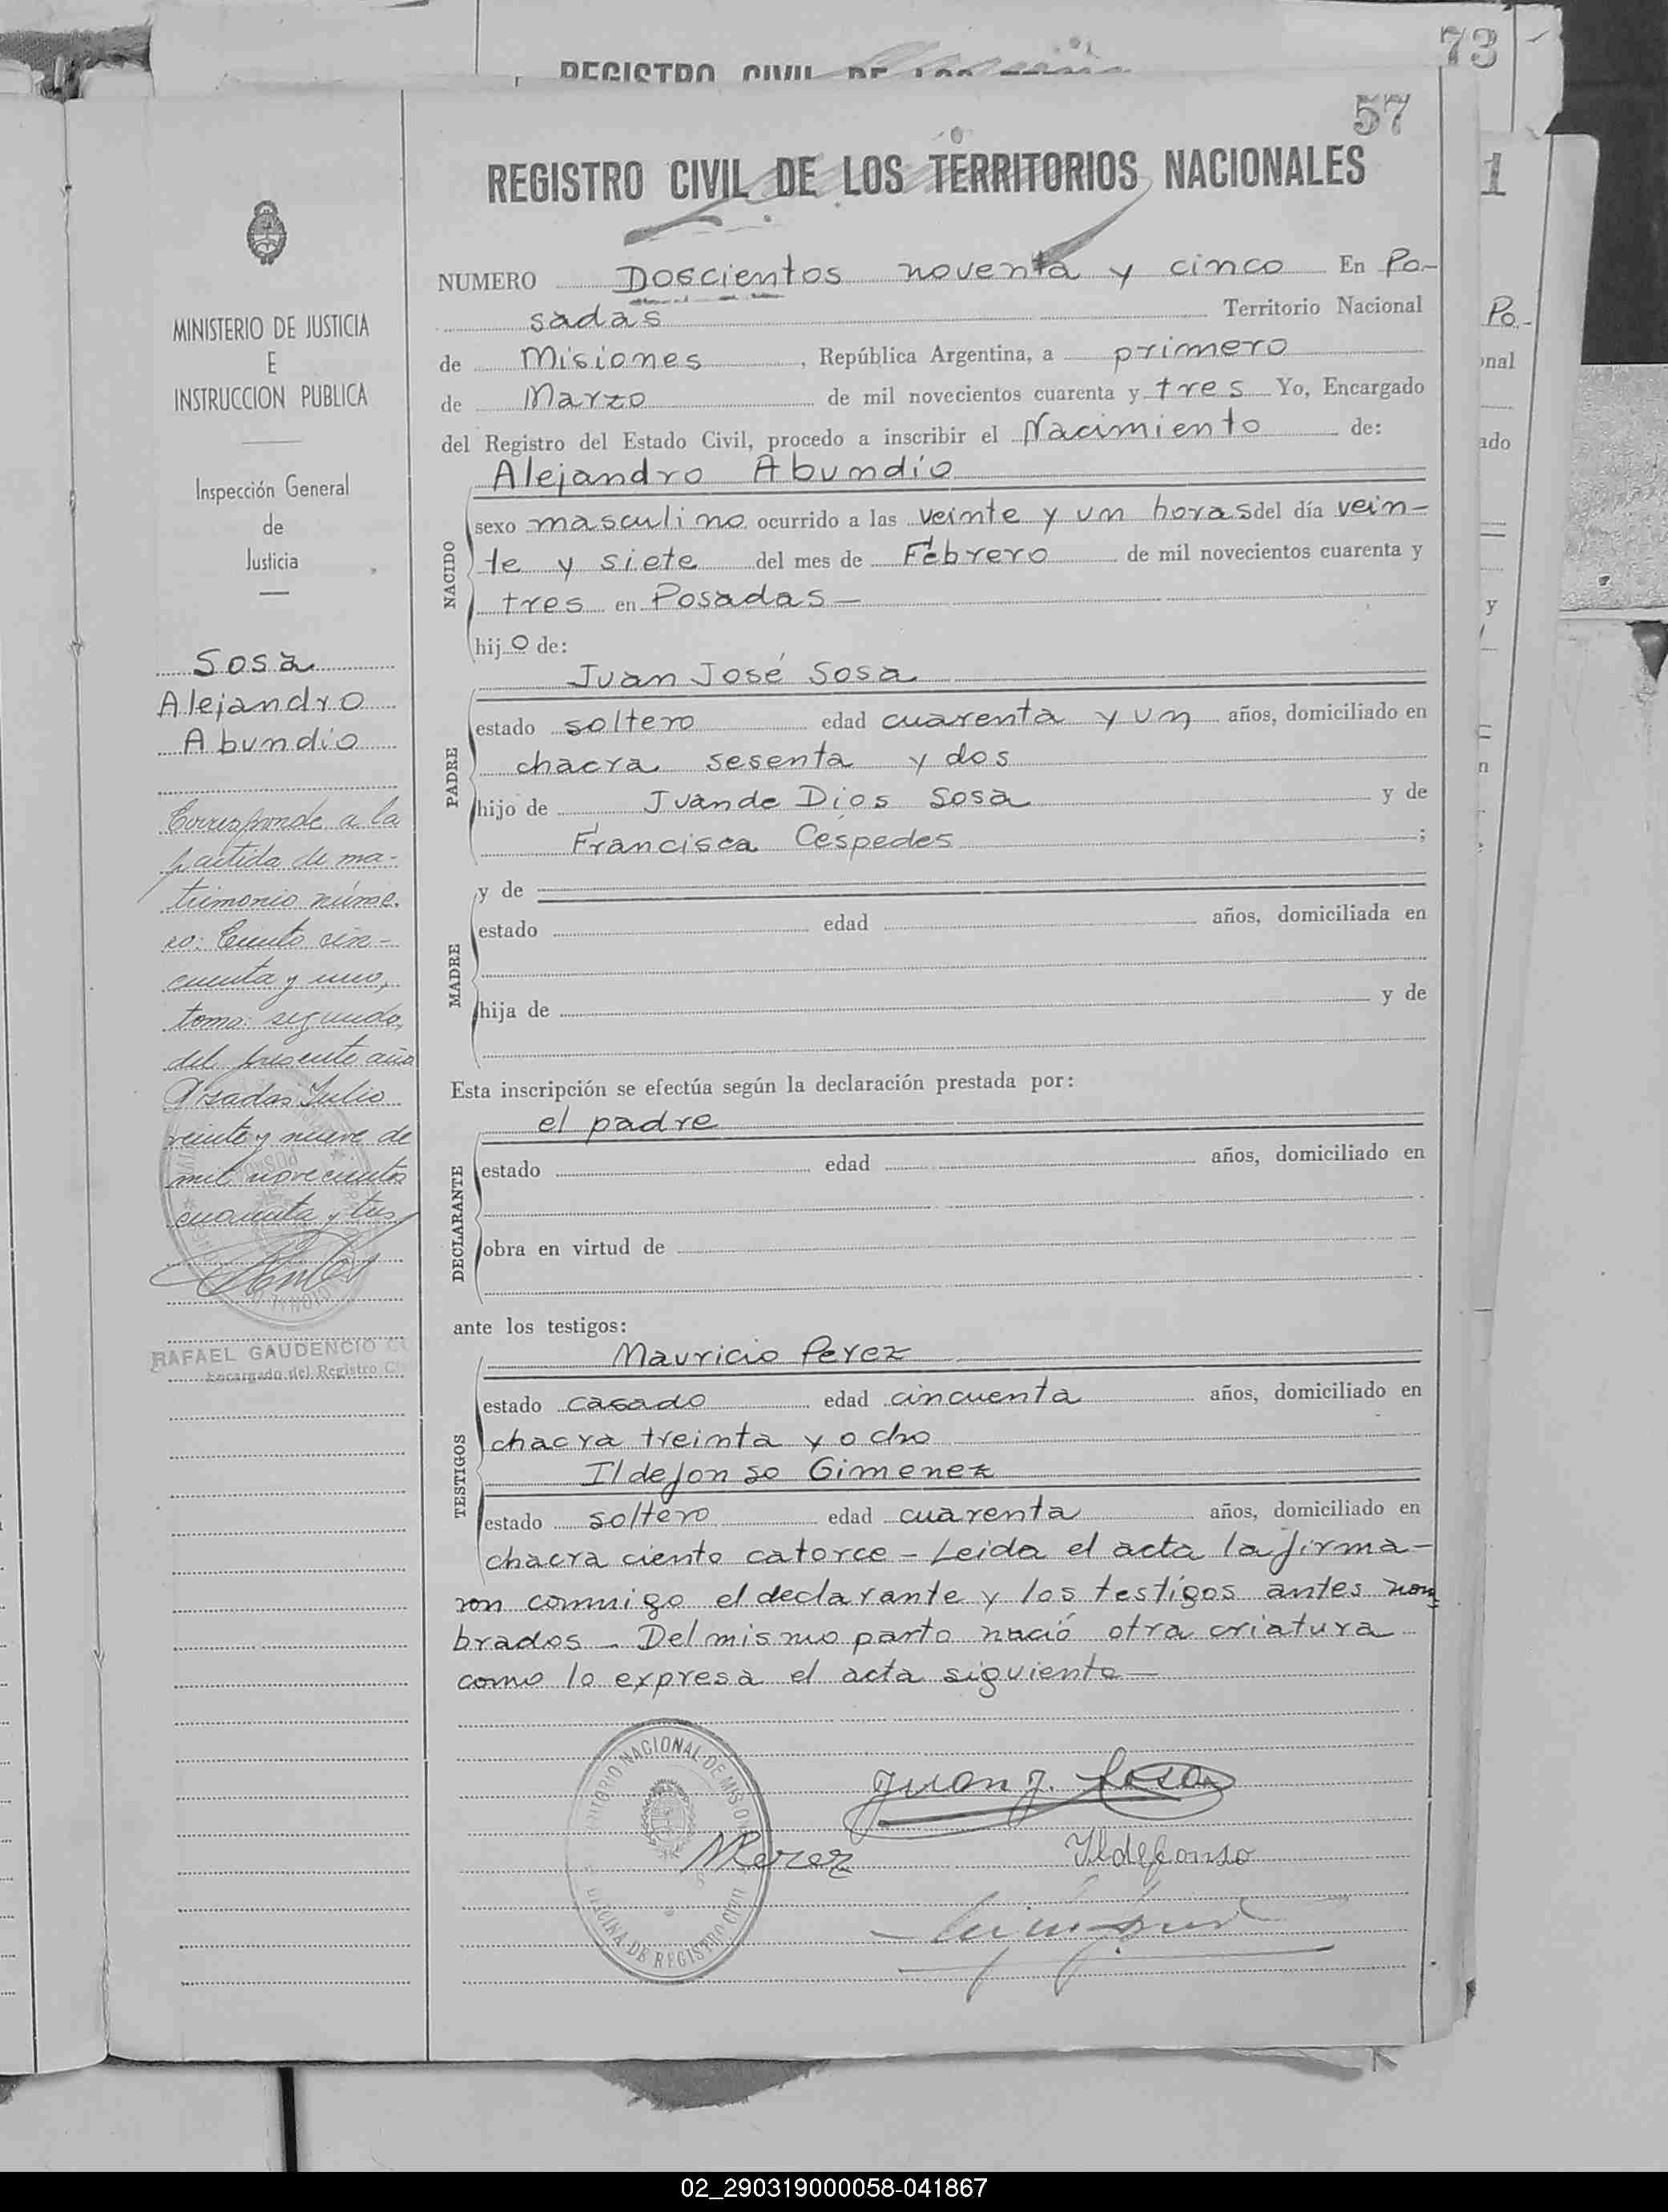 73
REGISTRO CIVIL DE LOS
57
REGISTRO CIVIL DE LOS TERRITORIOS NACIONALES
MINISTERIO DE JUSTICIA
E
INSTRUCCION PUBLICA
Inspección General
de
Justicia
Sosa
Alejandro
Abundio
Corresponde a la
partida de ma-
trimonio núme-
ro: Ciento cin-
cuenta y uno,
tomo: segundo,
del presente año
Posadas Julio
veinte y nueve de
mil novecientos
cuarenta y tres
RAFAEL GAUDENCIO
Encargado del Registro
NUMERO Doscientos noventa y cinco En Po-
sadas Territorio Nacional
de Misiones, República Argentina, a primero
de Marzo de mil novecientos cuarenta y tres Yo, Encargado
del Registro del Estado Civil, procedo a inscribir el Nacimiento de:
NACIDO
Alejandro Abundio
sexo masculino ocurrido a las veinte y un horas del día vein-
te y siete del mes de Febrero de mil novecientos cuarenta y
tres en Posadas—
hijo de:
PADRE
Juan José Sosa
estado soltero edad cuarenta y un años, domiciliado en
chacra sesenta y dos
hijo de Juan de Dios Sosa y de
Francisca Céspedes ;
MADRE
y de
estado edad años, domiciliada en
hija de y de
Esta inscripción se efectúa según la declaración prestada por:
DECLARANTE
el padre
estado edad años, domiciliado en
obra en virtud de
ante los testigos:
TESTIGOS
Mauricio Perez
estado casado edad cincuenta años, domiciliado en
chacra treinta y ocho
Ildefonso Gimenez
estado soltero edad cuarenta años, domiciliado en
chacra ciento catorce - Leida el acta la firma-
ron conmigo el declarante y los testigos antes nom=
brados - Del mismo parto nació otra criatura
como lo expresa el acta siguiente—
Juan J. Sosa
MPerez
Ildefonso
TERRITORIO NACIONAL DE MISIONES
OFICINA DE REGISTRO CIVIL
1
Po-
onal
ado
y
n
02_290319000058-041867